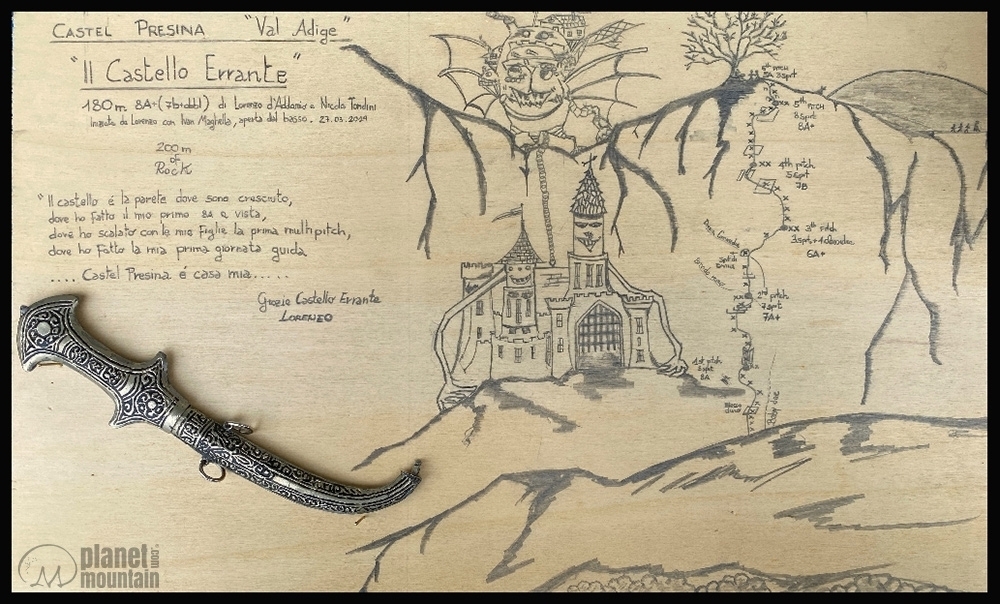 CASTEL PRESINA "Val Adige"
"Il Castello Errante"
180m 8A+(7b+obbl) di Lorenzo d'Addario e Nicola Tondini
iniziata da Lorenzo con Ivan Maghella, aperta dal basso. 27.03.2024
200m
of
Rock
"Il castello é la parete dove sono cresciuto,
dove ho fatto il mio primo 8a a vista,
dove ho scalato con le mie figlie la prima multipitch,
dove ho fatto la mia prima giornata guida
.... Castel Presina é casa mia.....
Grazie Castello Errante
LORENZO
5th pitch
8spit
8A+
4th pitch
5spit
7B
3rd pitch
6A+
2nd pitch
7spit
7A+
1st pitch
8A
planet
mountain
.COM